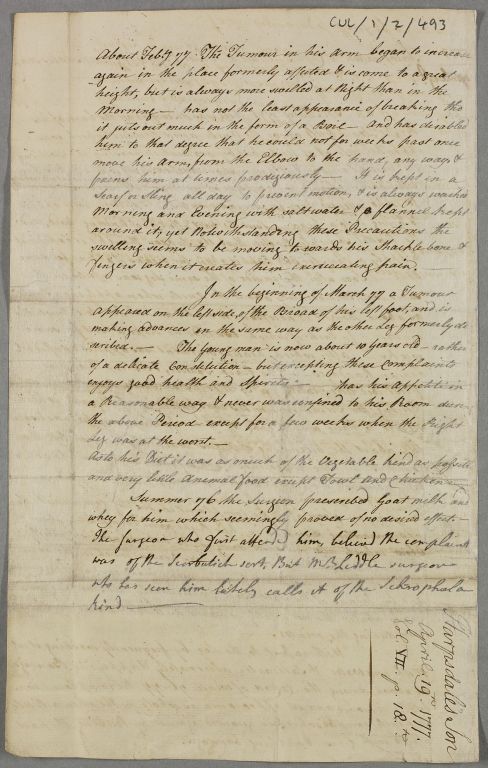 CUL/1/2/493
About Feb:ry 77. The Tumour in his Arm began to increase
again in the place formerly affected & is come to a great
height, but is always more swelled at Night than in the
Morning — has not the least appearance of breaking tho
it juts out much in the form of a Boil — and has disabled
him to that degree that he could not for weeks past once
move his Arm, from the Elbow to the hand, any way, &
pains him at times prodigiously — It is kept in a
Scarf or Sling all day to prevent motion, & is always washed
Morning and Evening with salt water & a flannel kept
around it, yet Notwithstanding these Precautions the
swelling seems to be moving towards his Shackle bone &
fingers when it creates him excruciating pain. —
In the beginning of March 77 a Tumour
appeared on the left side, of the Broad of his left foot, and is
making advances in the same way as the other Leg formerly de
scribed. — The Young man is now about 10 years old — rather
of a delicate Constitution — but excepting these Complaints
enjoys good health and Spirits — has his Appetite in
a Reasonable way & never was confined to his Room dur
the above Period except for a few weeks when the Right
Leg was at the worst. —
As to his Diet it was as much of the Vegetable kind as possible
and very little Animal food except Fowl and Chicken —
Summer 76 the Surgeon prescribed Goat milk and
whey for him which seemingly proved of no desired effect —
The Surgeon who first attend him, beliv'd the complaint
was of the Scorbutick sort, But Mr Liddle surgeon
who has seen him lately calls it of the Schrophula
kind —
Harpsdale's Son
April 19th 1777.
Vol VII. p. 18.